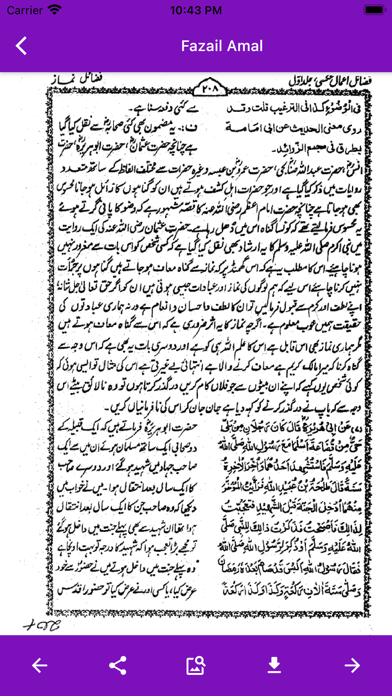 Carrier
10:43 PM
Fazail Amal
فضائل اعمال عکسی، جلد اول
۲۰۸
فضائل نماز
فی الوضوء کذا فی الترغیب قلت وقد
روی معنی الحدیث عن ابی امامة
بطرق فی مجمع الزوائد۔
سے کئی دفعہ سنا ہے۔
ف: یہ مضمون بھی کئی صحابہؓ سے نقل کیا گیا
ہے چنانچہ حضرت عثمانؓ حضرت ابوہریرہؓ حضرت
انسؓ حضرت عبداللہ صنابحیؓ حضرت عمرو بن عبسہ وغیرہ حضرات سے مختلف الفاظ کے ساتھ متعدد
روایات میں ذکر کیا گیا ہے اور جو حضرات اہل کشف ہوتے ہیں ان کو گناہوں کا زائل ہو جانا محسوس
بھی ہو جاتا ہے چنانچہ حضرت امام اعظم رضی اللہ عنہ کا قصہ مشہور ہے کہ وضو کا پانی گرتے ہوئے
یہ محسوس فرما لیتے تھے کہ کونسا گناہ اس میں دھل رہا ہے۔ حضرت عثمان رضی اللہ عنہ کی ایک روایت
میں نبی اکرم صلی اللہ علیہ وسلم کا یہ ارشاد بھی نقل کیا گیا ہے کہ کسی شخص کو اس بات سے مغرور نہیں
ہونا چاہئے۔ اس کا مطلب یہ ہے کہ اس گھمنڈ پر کہ نماز سے گناہ معاف ہو جاتے ہیں گناہوں پر جرأت
نہیں کرنا چاہئے اس لئے کہ ہم لوگوں کی نماز اور عبادات جیسی ہوتی ہیں ان کو اگر حق تعالیٰ جل شانہٗ
اپنے لطف اور کرم سے قبول فرمالیں تو ان کا لطف و احسان و انعام ہے ورنہ ہماری عبادتوں کی
حقیقت ہمیں خوب معلوم ہے۔ اگرچہ نماز کا یہ اثر ضروری ہے کہ اس سے گناہ معاف ہوتے ہیں
مگر ہماری نماز بھی اس قابل ہے اس کا علم اللہ ہی کو ہے اور دوسری بات یہ بھی ہے کہ اس وجہ سے
گناہ کرنا کہ میرا مالک کریم ہے معاف کرنے والا ہے انتہائی بے غیرتی ہے اس کی مثال تو ایسی ہوئی کہ
کوئی شخص یوں کہے کہ اپنے ان بیٹوں سے جو فلاں کام کریں درگذر کرتا ہوں تو وہ نالائق بیٹے اس
وجہ سے کہ باپ نے درگذر کرنے کو کہہ دیا ہے جان جان کر اس کی نافرمانیاں کریں۔
(۷) عن ابی ہریرة قال کان رجلان من بلی
حی من قضاعة اسلما مع رسول اللہ صلی اللہ
علیہ وسلم فاستشهد احدهما واخر الاخر
سنة قال طلحة بن عبید اللہ فرأیت المؤخر
منهما ادخل الجنة قبل الشهید فتعجبت
لذلک فاصبحت فذکرت ذلک للنبی صلی
اللہ علیہ وسلم او ذکر لرسول اللہ صلی اللہ
فقال رسول اللہ الیس قد صام بعده رمضان
وصلی ستة الاف رکعة وکذا وکذا رکعة
حضرت ابوہریرہؓ فرماتے ہیں کہ ایک قبیلہ کے
دو صحابی ایک ساتھ مسلمان ہوئے ان میں سے ایک
صاحب جہاد میں شہید ہوگئے اور دوسرے صاحب
کا ایک سال بعد انتقال ہوا۔ میں نے خواب میں
دیکھا کہ وہ صاحب جن کا ایک سال بعد انتقال
ہوا تھا ان شہید سے بھی پہلے جنت میں داخل ہوگئے
تو مجھے بڑا تعجب ہوا کہ شہید کا درجہ تو بہت اونچا ہے
وہ پہلے جنت میں داخل ہوتے میں نے حضورؐ سے خود
عرض کیا، یا کسی اور نے عرض کیا تو حضور اقدس